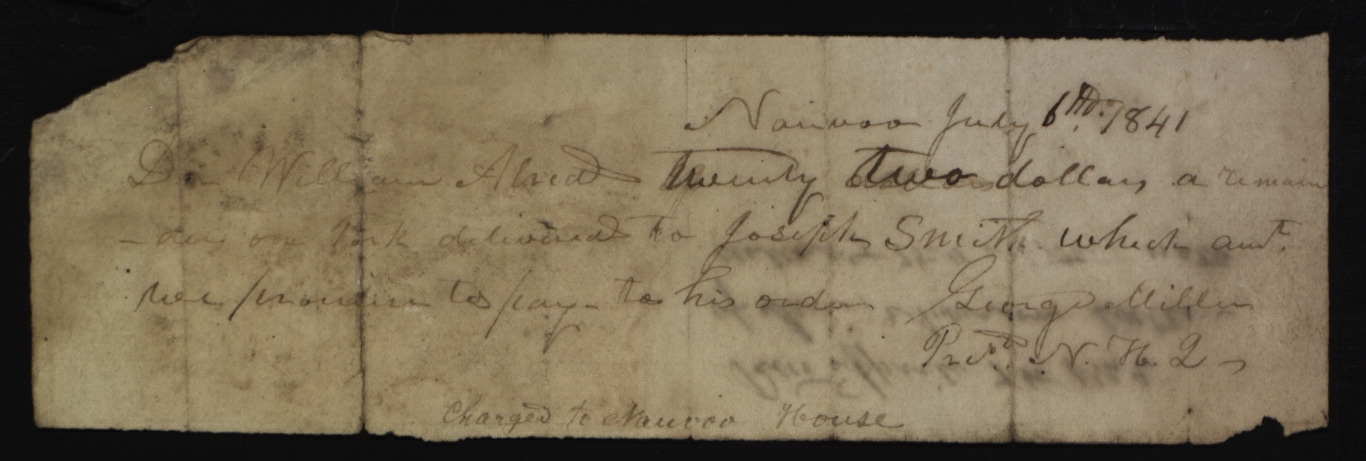 Nauvoo July 6th. 1841
Due William Alred twenty two dollars a remain
-der on Pork delivered to Joseph Smith which amt.
we promise to pay to his order George Miller
Presd. N. H.
Charged to Nauvoo House